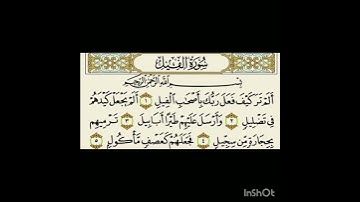 سُورَةُ الْفِيلِ
بِسْمِ اللَّهِ الرَّحْمَٰنِ الرَّحِيمِ
أَلَمْ تَرَ كَيْفَ فَعَلَ رَبُّكَ بِأَصْحَابِ الْفِيلِ ١ أَلَمْ يَجْعَلْ كَيْدَهُمْ
فِي تَضْلِيلٍ ٢ وَأَرْسَلَ عَلَيْهِمْ طَيْرًا أَبَابِيلَ ٣ تَرْمِيهِم
بِحِجَارَةٍ مِّن سِجِّيلٍ ٤ فَجَعَلَهُمْ كَعَصْفٍ مَّأْكُولٍ ٥
InShOt